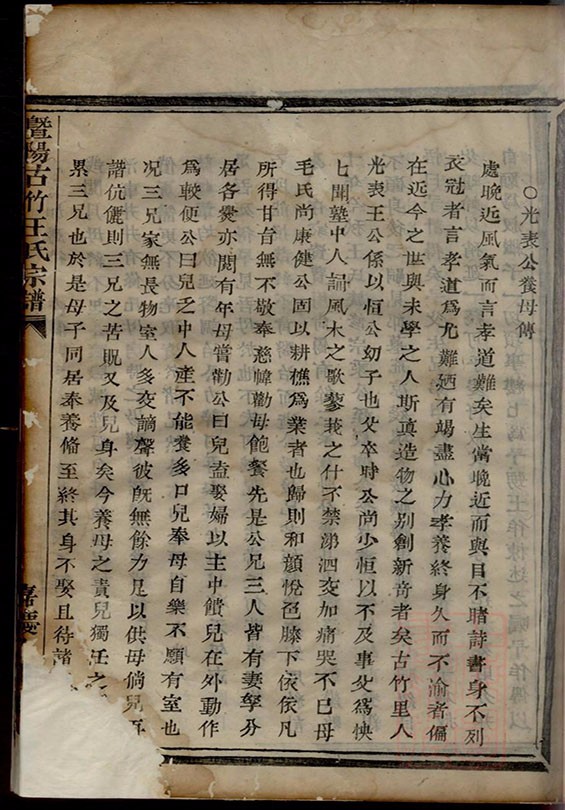 ○光表公養母傳
處晚近風氣而言孝道難矣生當晚近而與目不賭詩書身不列
衣冠者言孝道爲尤難廼有竭盡心力孝養終身久而不渝者偏
在近今之世與未學之人斯真造物之別創新奇者矣古竹里人
光表王公係以恒公幼子也父卒時公尚少恒以不及事父爲怏
七聞塾中人誦風木之歌蓼莪之什不禁涕泗交加痛哭不已母
毛氏尚康健公固以耕樵爲業者也歸則和顏悅色膝下依依凡
所得甘旨無不敬奉慈幃勸母飽餐先是公兄三人皆有妻孥分
居各爨亦閱有年母嘗勸公曰兒盍娶婦以主中饋兒在外動作
爲較便公曰兒乏中人產不能養多口兒奉母自樂不願有室也
况三兄家無長物室人多交謫聲彼既無餘力足以供母倘兒再
諧伉儷則三兄之苦貺又及兒身矣今養母之責兒獨任之
累三兄也於是母子同居奉養備至終其身不娶且待諸
暨陽古竹王氏宗譜